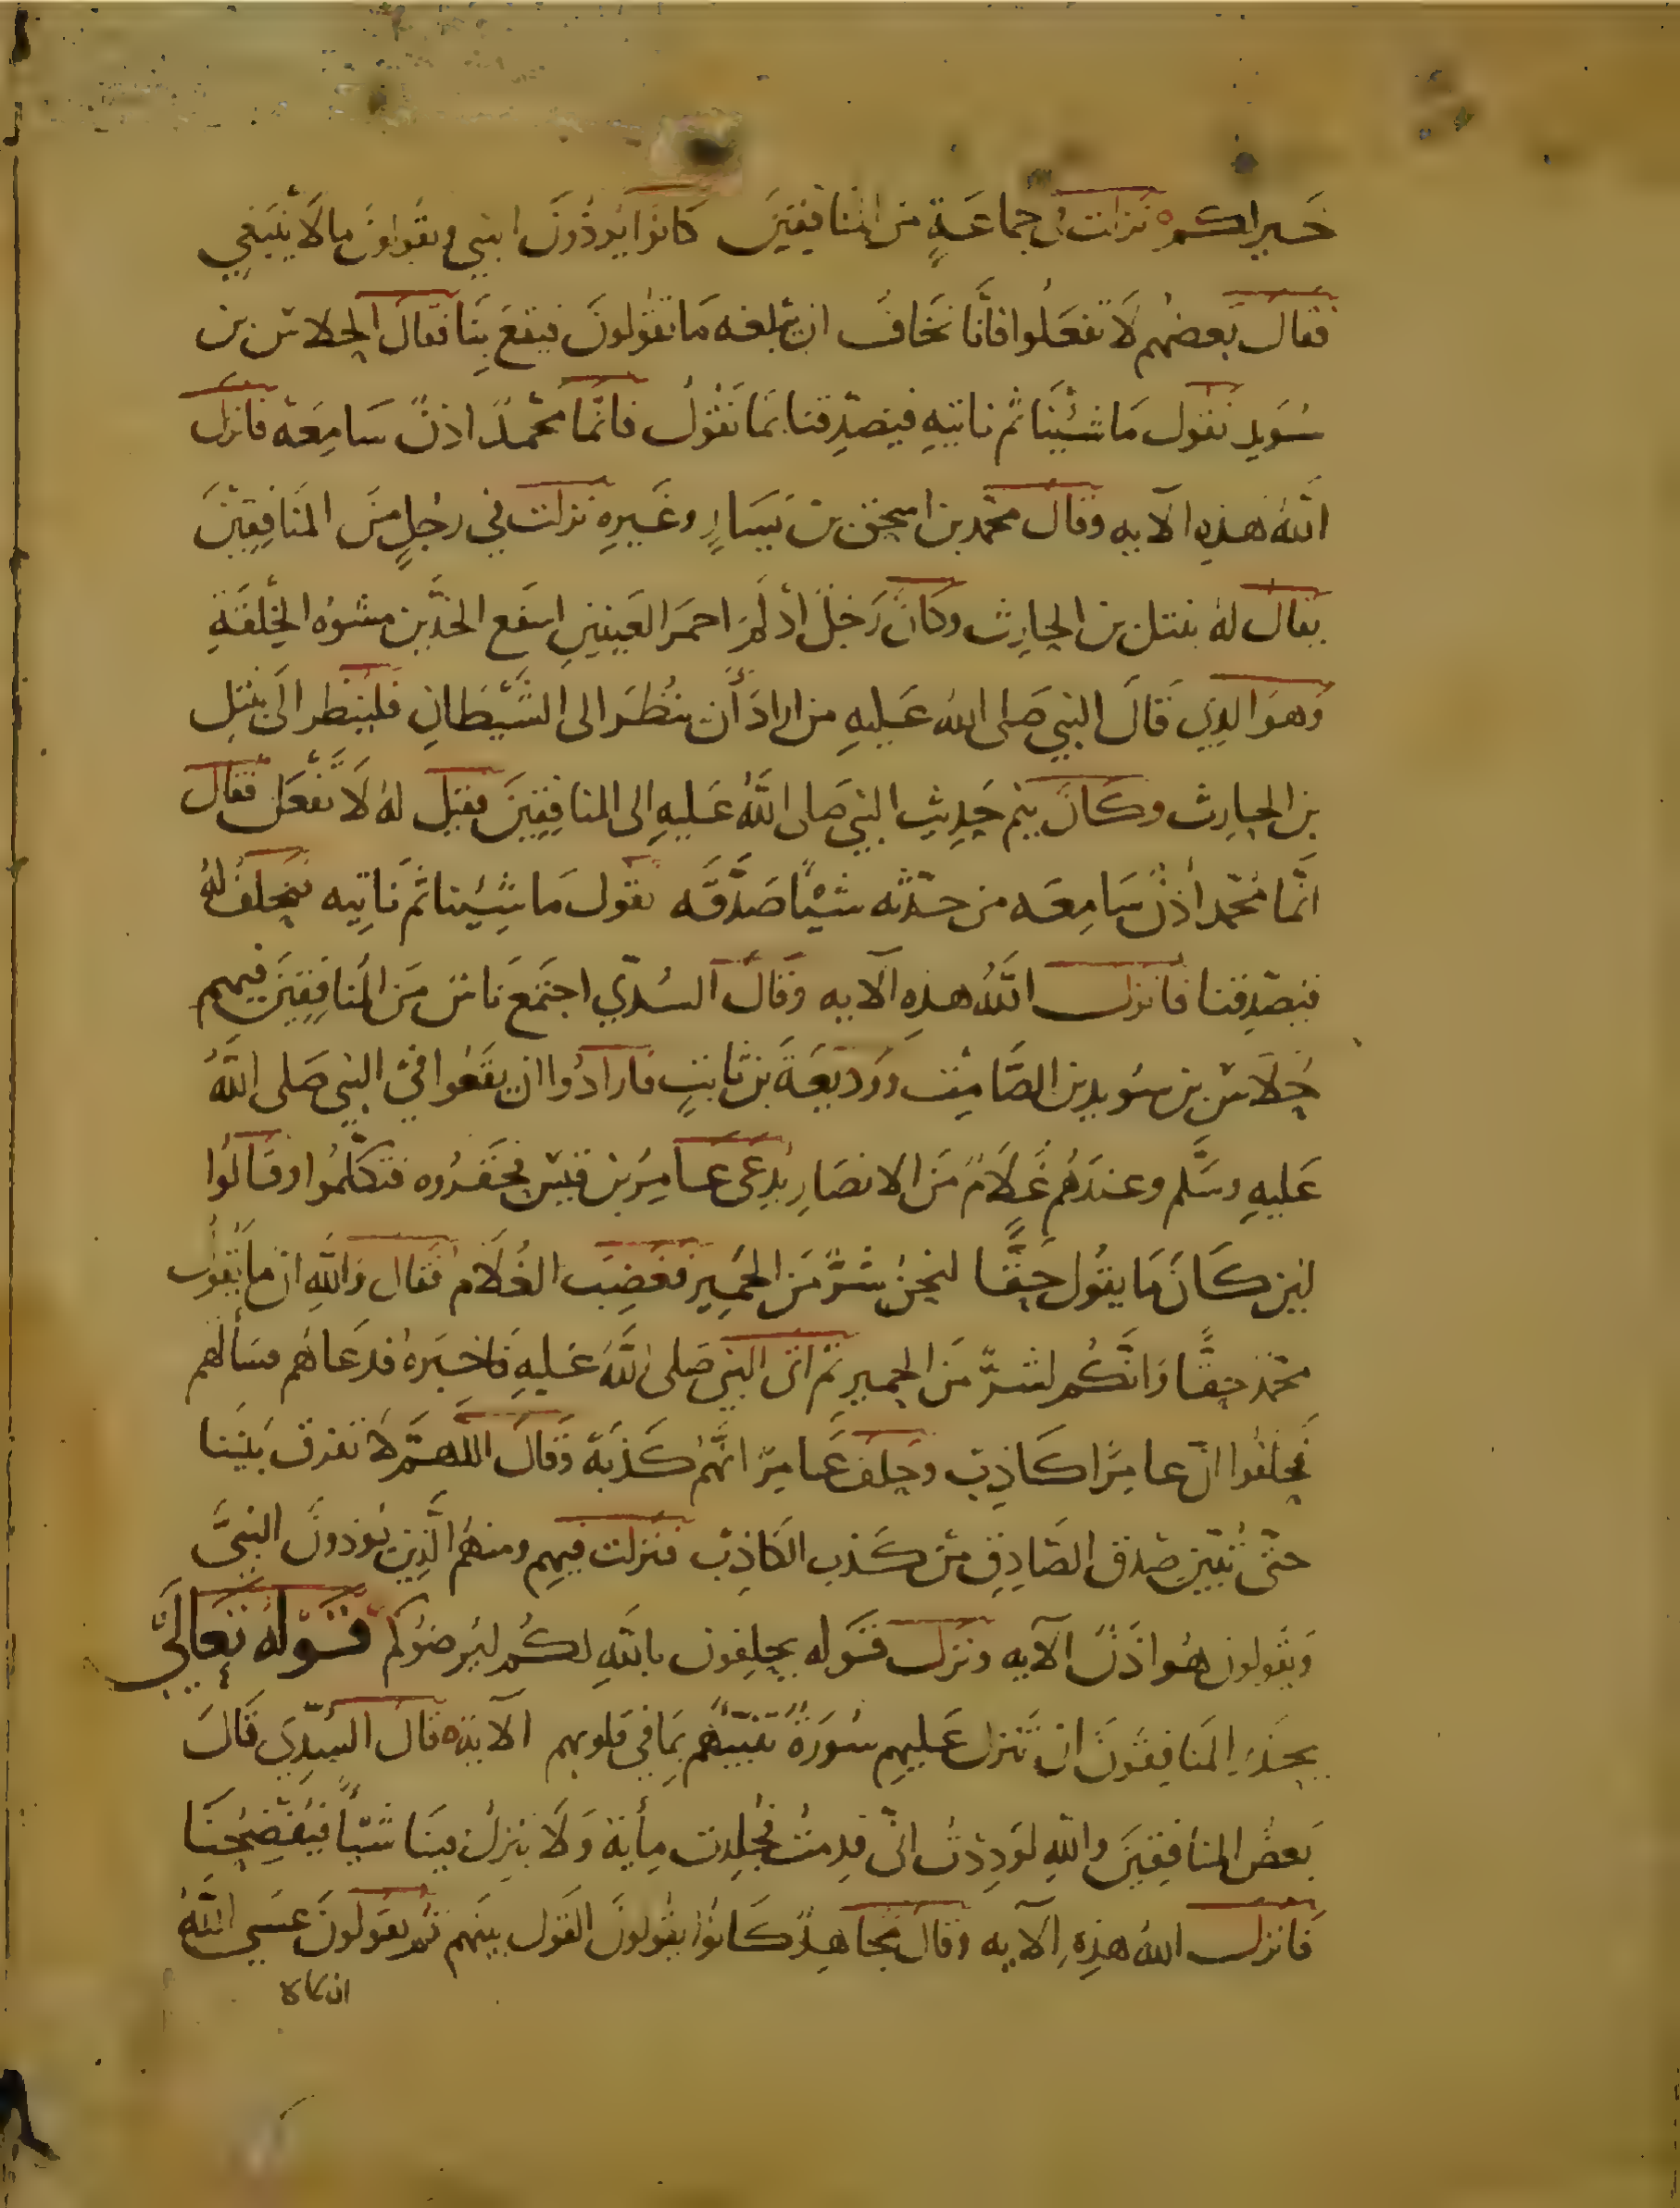 خير لكم نزلت في جماعة من المنافقين كانوا يوذون النبي ويقولون ما لا ينبغي
فقال بعضهم لا تفعلوا فانا نخاف ان يبلغه ما تقولون فيقع بنا فقال الجلاس بن
سويد نقول ما شئنا ثم ناتيه فيصدقنا بما نقول فانما محمد اذن سامعه فانزل
الله هذه الآيه وقال محمد بن اسحق بن يسار وغيره نزلت في رجل من المنافقين
يقال له نبتل بن الحارث وكان رجل ادلم احمر العينين اسفع الخدين مشوه الخلقة
وهو الذي قال النبي صلى الله عليه من اراد أن ينظر الى الشيطان فلينظر الى نبتل
بن الحارث وكان ينم حديث النبي صلى الله عليه الى المنافقين فقيل له لا تفعل فقال
انما محمد أذن سامعه من حدثه شيئا صدقه نقول ما شئنا ثم ناتيه فنحلف له
فيصدقنا فانزل الله هذه الآيه وقال السدي اجتمع ناس من المنافقين فيهم
جلاس بن سويد بن الصامت ووديعة بن ثابت فارادوا ان يقعوا في النبي صلى الله
عليه وسلم وعندهم غلام من الانصار يدعى عامر بن قيس فحقروه فتكلموا وقالوا
لين كان ما يقول حقا لنحن شر من الحمير فغضب الغلام فقال والله ان ما يقول
محمد حقا وانكم لشر من الحمير ثم اتى النبي صلى الله عليه فاخبره فدعاهم فسألهم
فحلفوا ان عامرا كاذب وحلف عامر انهم كذبة وقال اللهم لا تفرق بيننا
حتى تبين صدق الصادق من كذب الكاذب فنزلت فيهم ومنهم الذين يوذون النبي
ويقولون هو اذن الآيه ونزل قوله يحلفون بالله لكم ليرضوكم قوله تعالى
يحذر المنافقون ان تنزل عليهم سورة تنبيهم بما في قلوبهم الآية قال السدي قال
بعض المنافقين والله لوددت اني قدمت فجلدت مأية ولا ينزل فينا شيئا فيفضحنا
فانزل الله هذه الآيه وقال مجاهد كانوا يقولون القول بينهم ثم يقولون عسى الله
ان لا